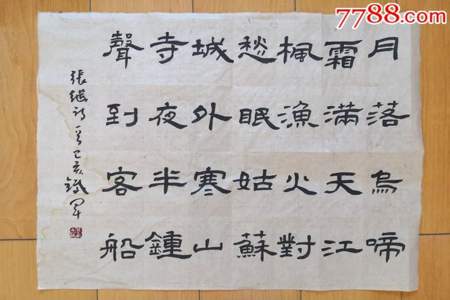 月落烏啼
霜滿天江
楓漁火對
愁眠姑蘇
城外寒山
寺夜半鍾
聲到客船
張繼詩一首己亥
7788.com